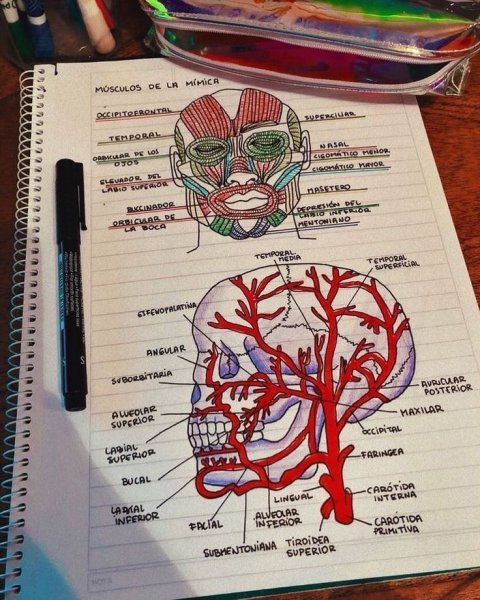 MÚSCULOS DE LA MÍMICA
OCCIPITOFRONTAL
TEMPORAL
ORBICULAR DE LOS
OJOS
ELEVADOR DEL
LABIO SUPERIOR
BUCCINADOR
ORBICULAR DE
LA BOCA
SUPERCILIAR
NASAL
CIGOMÁTICO MENOR
CIGOMÁTICO MAYOR
MASETERO
DEPRESIÓN DEL
LABIO INFERIOR
MENTONIANO
TEMPORAL
MEDIA
TEMPORAL
SUPERFICIAL
ESFENOPALATINA
ANGULAR
SUBORBITARIA
ALVEOLAR
SUPERIOR
LABIAL
SUPERIOR
BUCAL
LABIAL
INFERIOR
FACIAL
SUBMENTONIANA
LINGUAL
ALVEOLAR
INFERIOR
TIROIDEA
SUPERIOR
AURICULAR
POSTERIOR
MAXILAR
OCCIPITAL
FARINGEA
CARÓTIDA
INTERNA
CARÓTIDA
PRIMITIVA
NOTA